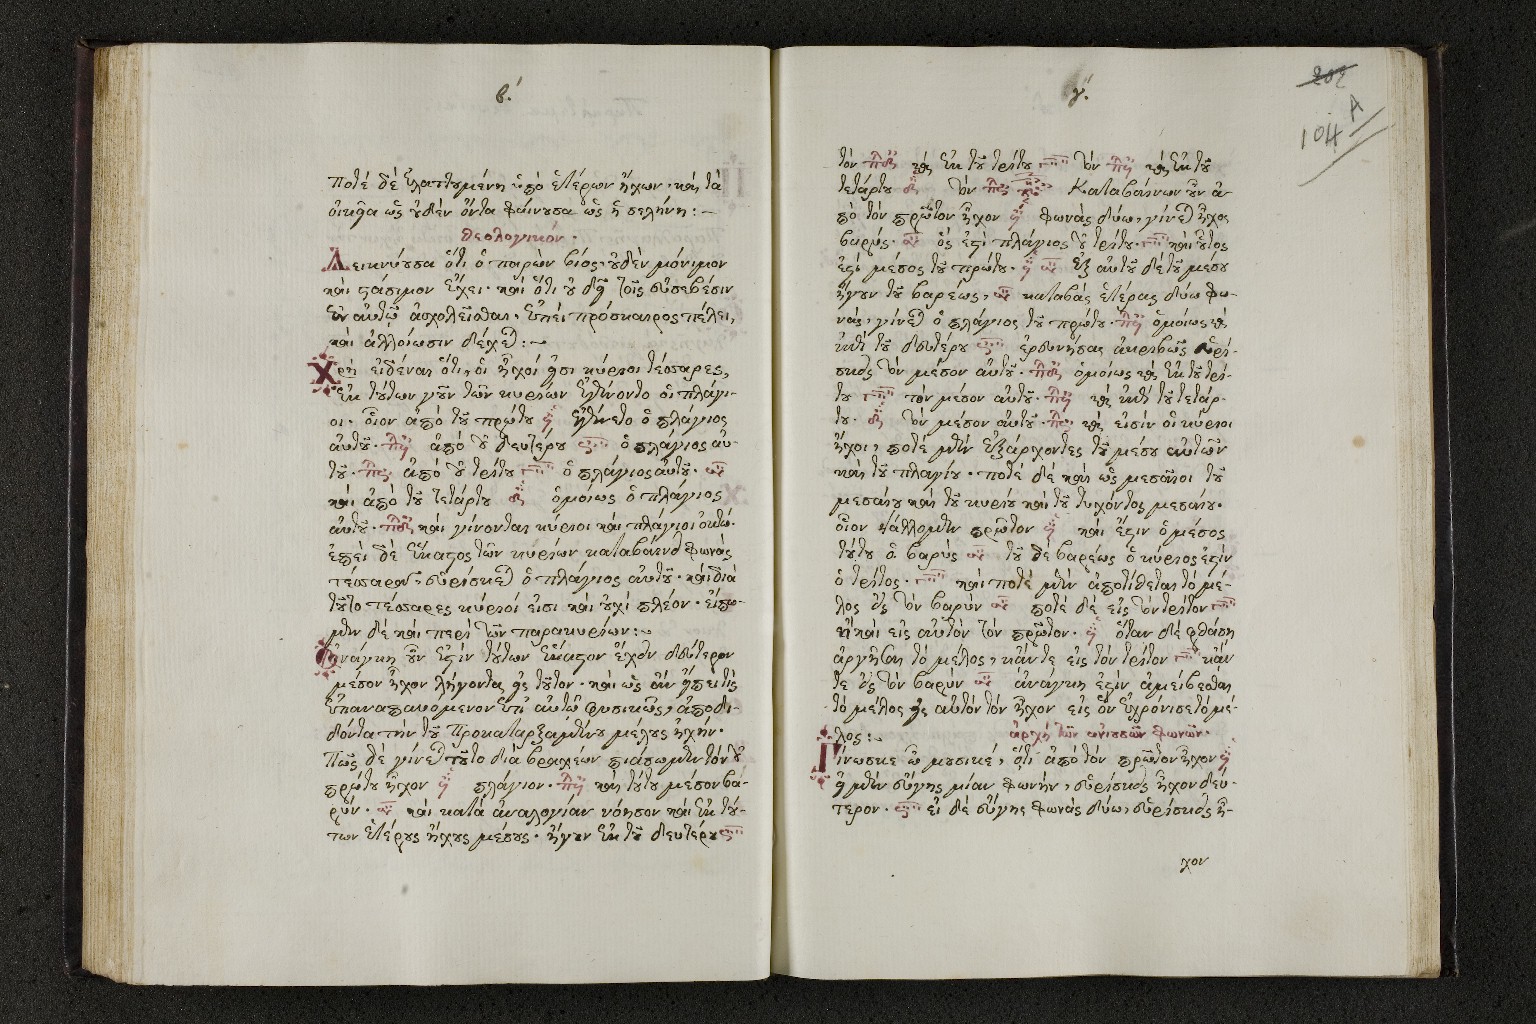 β΄.
ποτὲ δὲ ἐλαττουμένη ὑπὸ ἑτέρων ἤχων· καὶ τὰ
οἰκεῖα ὡς οὐδὲν ὄντα φαίνουσα ὡς ἡ σελήνη:~
Θεολογικόν·
Δεικνύουσα ὅτι ὁ παρὼν βίος οὐδὲν μόνιμον
καὶ στάσιμον ἔχει· καὶ ὅτι οὐ δεῖ τοῖς εὐσεβέσιν
ἐν αὐτῷ ἀσχολεῖσθαι· ἐπεὶ πρόσκαιρος πέλει,
καὶ ἀλλοίωσιν δέχεται:~
Χρὴ εἰδέναι ὅτι, οἱ ἦχοί εἰσι κύριοι τέσσαρες,
ἐκ τούτων γοῦν τῶν κυρίων ἐγένοντο οἱ πλάγι-
οι· οἷον ἀπὸ τοῦ πρώτου ἐγένετο ὁ πλάγιος
αὐτοῦ· ἀπὸ τοῦ δευτέρου ὁ πλάγιος αὐ-
τοῦ· ἀπὸ τοῦ τρίτου ὁ πλάγιος αὐτοῦ·
καὶ ἀπὸ τοῦ τετάρτου ὁμοίως ὁ πλάγιος
αὐτοῦ· καὶ γίνονται κύριοι καὶ πλάγιοι ὀκτώ·
ἐπεὶ δὲ ἕκαστος τῶν κυρίων καταβαίνει φωνὰς
τέσσαρας εὑρίσκεται ὁ πλάγιος αὐτοῦ· καὶ διὰ
τοῦτο τέσσαρες κύριοί εἰσι καὶ οὐχὶ πλέον· εἴπω-
μεν δὲ καὶ περὶ τῶν παρακυρίων:~
Ἀνάγκη οὖν ἐστὶν τούτων ἕκαστον ἔχειν δεύτερον
μέσον ἦχον λήγοντα εἰς τοῦτον· καὶ ὡς ἂν εἴποι τις
ἐπαναπαυόμενον ἐπ' αὐτῷ φυσικῶς, ἀποδι-
δόντα τὴν τοῦ προκαταρξαμένου μέλους ἠχήν·
Πῶς δὲ γίνεται τοῦτο διὰ βραχέων πιάσωμεν τὸν τοῦ
πρώτου ἦχον πλάγιον· καὶ τούτου μέσον βα-
ρύν· καὶ κατὰ ἀναλογίαν νόησον καὶ ἐκ τού-
των ἑτέρους ἤχους μέσους· ἤγουν ἐκ τοῦ δευτέρου
γ΄.
202
104 A
τὸν καὶ ἐκ τοῦ τρίτου τὸν καὶ ἐκ τοῦ
τετάρτου τὸν Καταβαίνων οὖν ἀ-
πὸ τὸν πρῶτον ἦχον φωνὰς δύω, γίνεται ἦχος
βαρύς· ὅς ἐστι πλάγιος τοῦ τρίτου· καὶ οὗτος
ἐστὶ μέσος τοῦ πρώτου· ἐξ αὐτοῦ δὲ τοῦ μέσου
ἤγουν τοῦ βαρέως, καταβὰς ἑτέρας δύω φω-
νάς, γίνεται ὁ πλάγιος τοῦ πρώτου· ὁμοίως καὶ
ἐκ τοῦ δευτέρου ἐρευνήσας ἀκριβῶς εὑρί-
σκεις τὸν μέσον αὐτοῦ· ὁμοίως καὶ ἐκ τοῦ τρί-
του τὸν μέσον αὐτοῦ· καὶ ἐκ τοῦ τετάρ-
του· τὸν μέσον αὐτοῦ· καὶ εἰσὶν οἱ κύριοι
ἦχοι, ποτὲ μὲν ἐξάρχοντες τοῦ μέσου αὐτῶν
καὶ τοῦ πλαγίου· ποτὲ δὲ καὶ ὡς μεσάζοι τοῦ
μεσαίου καὶ τοῦ κυρίου καὶ τοῦ τυχόντος μεσαίου·
οἷον ψάλλομεν πρῶτον καὶ ἔστιν ὁ μέσος
τούτου ὁ βαρύς τοῦ δὲ βαρέως ὁ κύριος ἐστὶν
ὁ τρίτος· καὶ ποτὲ μὲν ἀποτίθεται τὸ μέ-
λος εἰς τὸν βαρύν ποτὲ δὲ εἰς τὸν τρίτον
ἢ καὶ εἰς αὐτὸν τὸν πρῶτον· ὅταν δὲ φθάσῃ
ἀργῆσαι τὸ μέλος, κἄν τε εἰς τὸν τρίτον κἄν
τε εἰς τὸν βαρύν ἀνάγκη ἐστὶν ἀμείβεσθαι
τὸ μέλος εἰς αὐτὸν τὸν ἦχον εἰς ὃν ἐχρόνισε τὸ μέ-
λος:~ ἀρχὴ τῶν ἀνιουσῶν φωνῶν·
Γίνωσκε ὦ μουσικέ, ὅτι ἀπὸ τὸν πρῶτον ἦχον
εἰ μὲν εὔγῃς μίαν φωνήν, εὑρίσκεις ἦχον δεύ-
τερον· εἰ δὲ εὔγῃς φωνὰς δύω, εὑρίσκεις ἦ-
χον